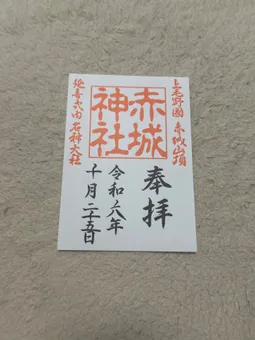 上毛野國 赤城山頂
奉拝
赤城神社
令和六年
十月二十五日
延喜式内 名神大社